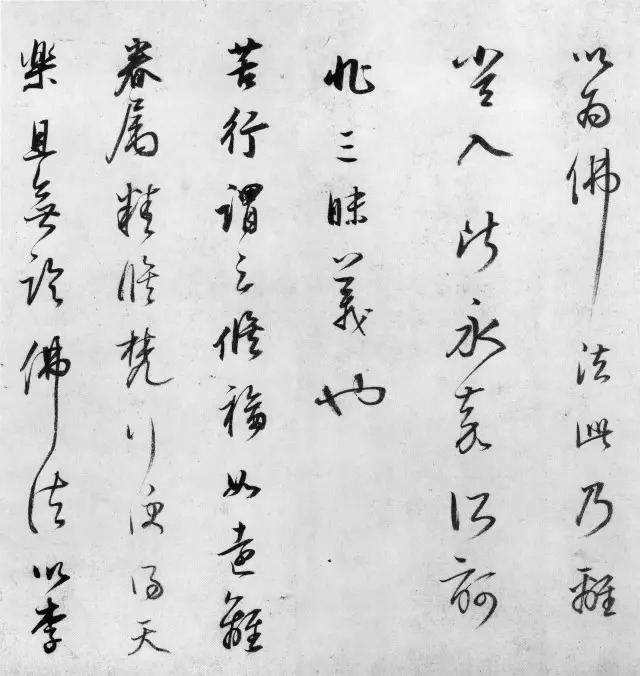 以為佛法此乃離
入永嘉所訶
非三昧義也
苦行謂之修福如遠離
眷属精修梵行便得天
樂且無論佛法以李